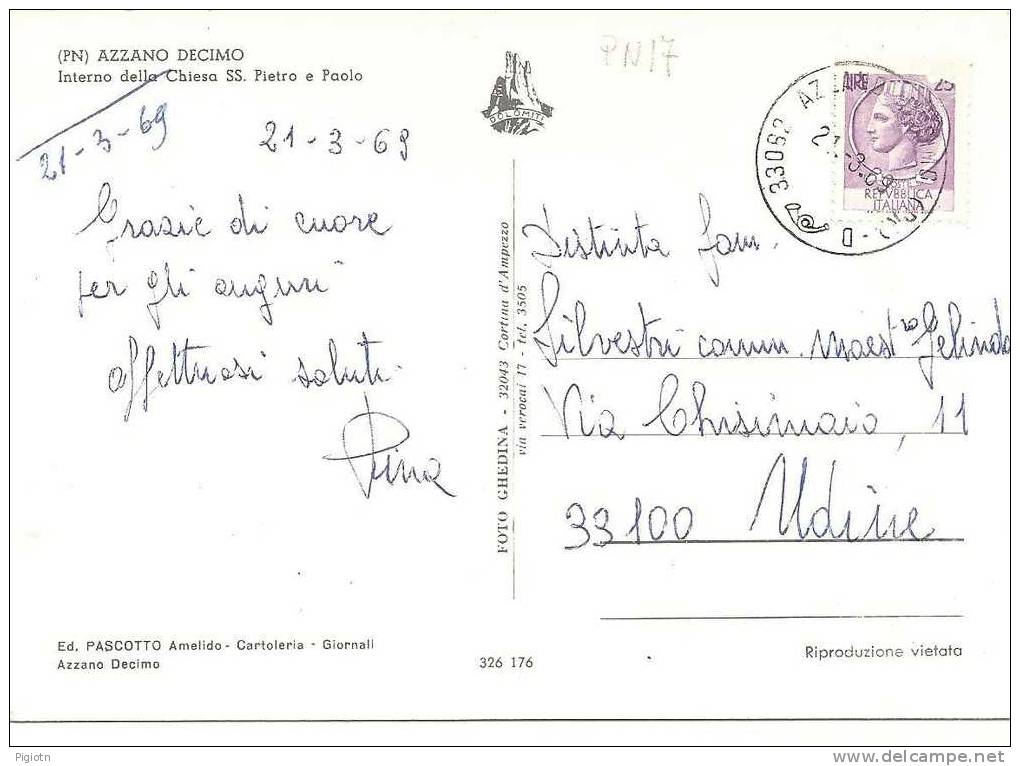 (PN) AZZANO DECIMO
Interno della Chiesa SS. Pietro e Paolo
21-3-69
21-3-69
Grazie di cuore
per gli auguri
affettuosi saluti.
Pina
Ed. PASCOTTO Amelido - Cartoleria - Giornali
Azzano Decimo
DOLOMITI
FOTO GHEDINA - 32043 Cortina d'Ampezzo
via verocai 17 - tel. 3505
326 176
PN17
33082 AZZANO DECIMO
21-3-69
LIRE 25
POSTE
REPVBBLICA
ITALIANA
Distinta fam.
Silvestri comm. maestro Gelindo
Via Chisimaio, 11
33100 Udine
Riproduzione vietata
Pigiotn
delcampe.net